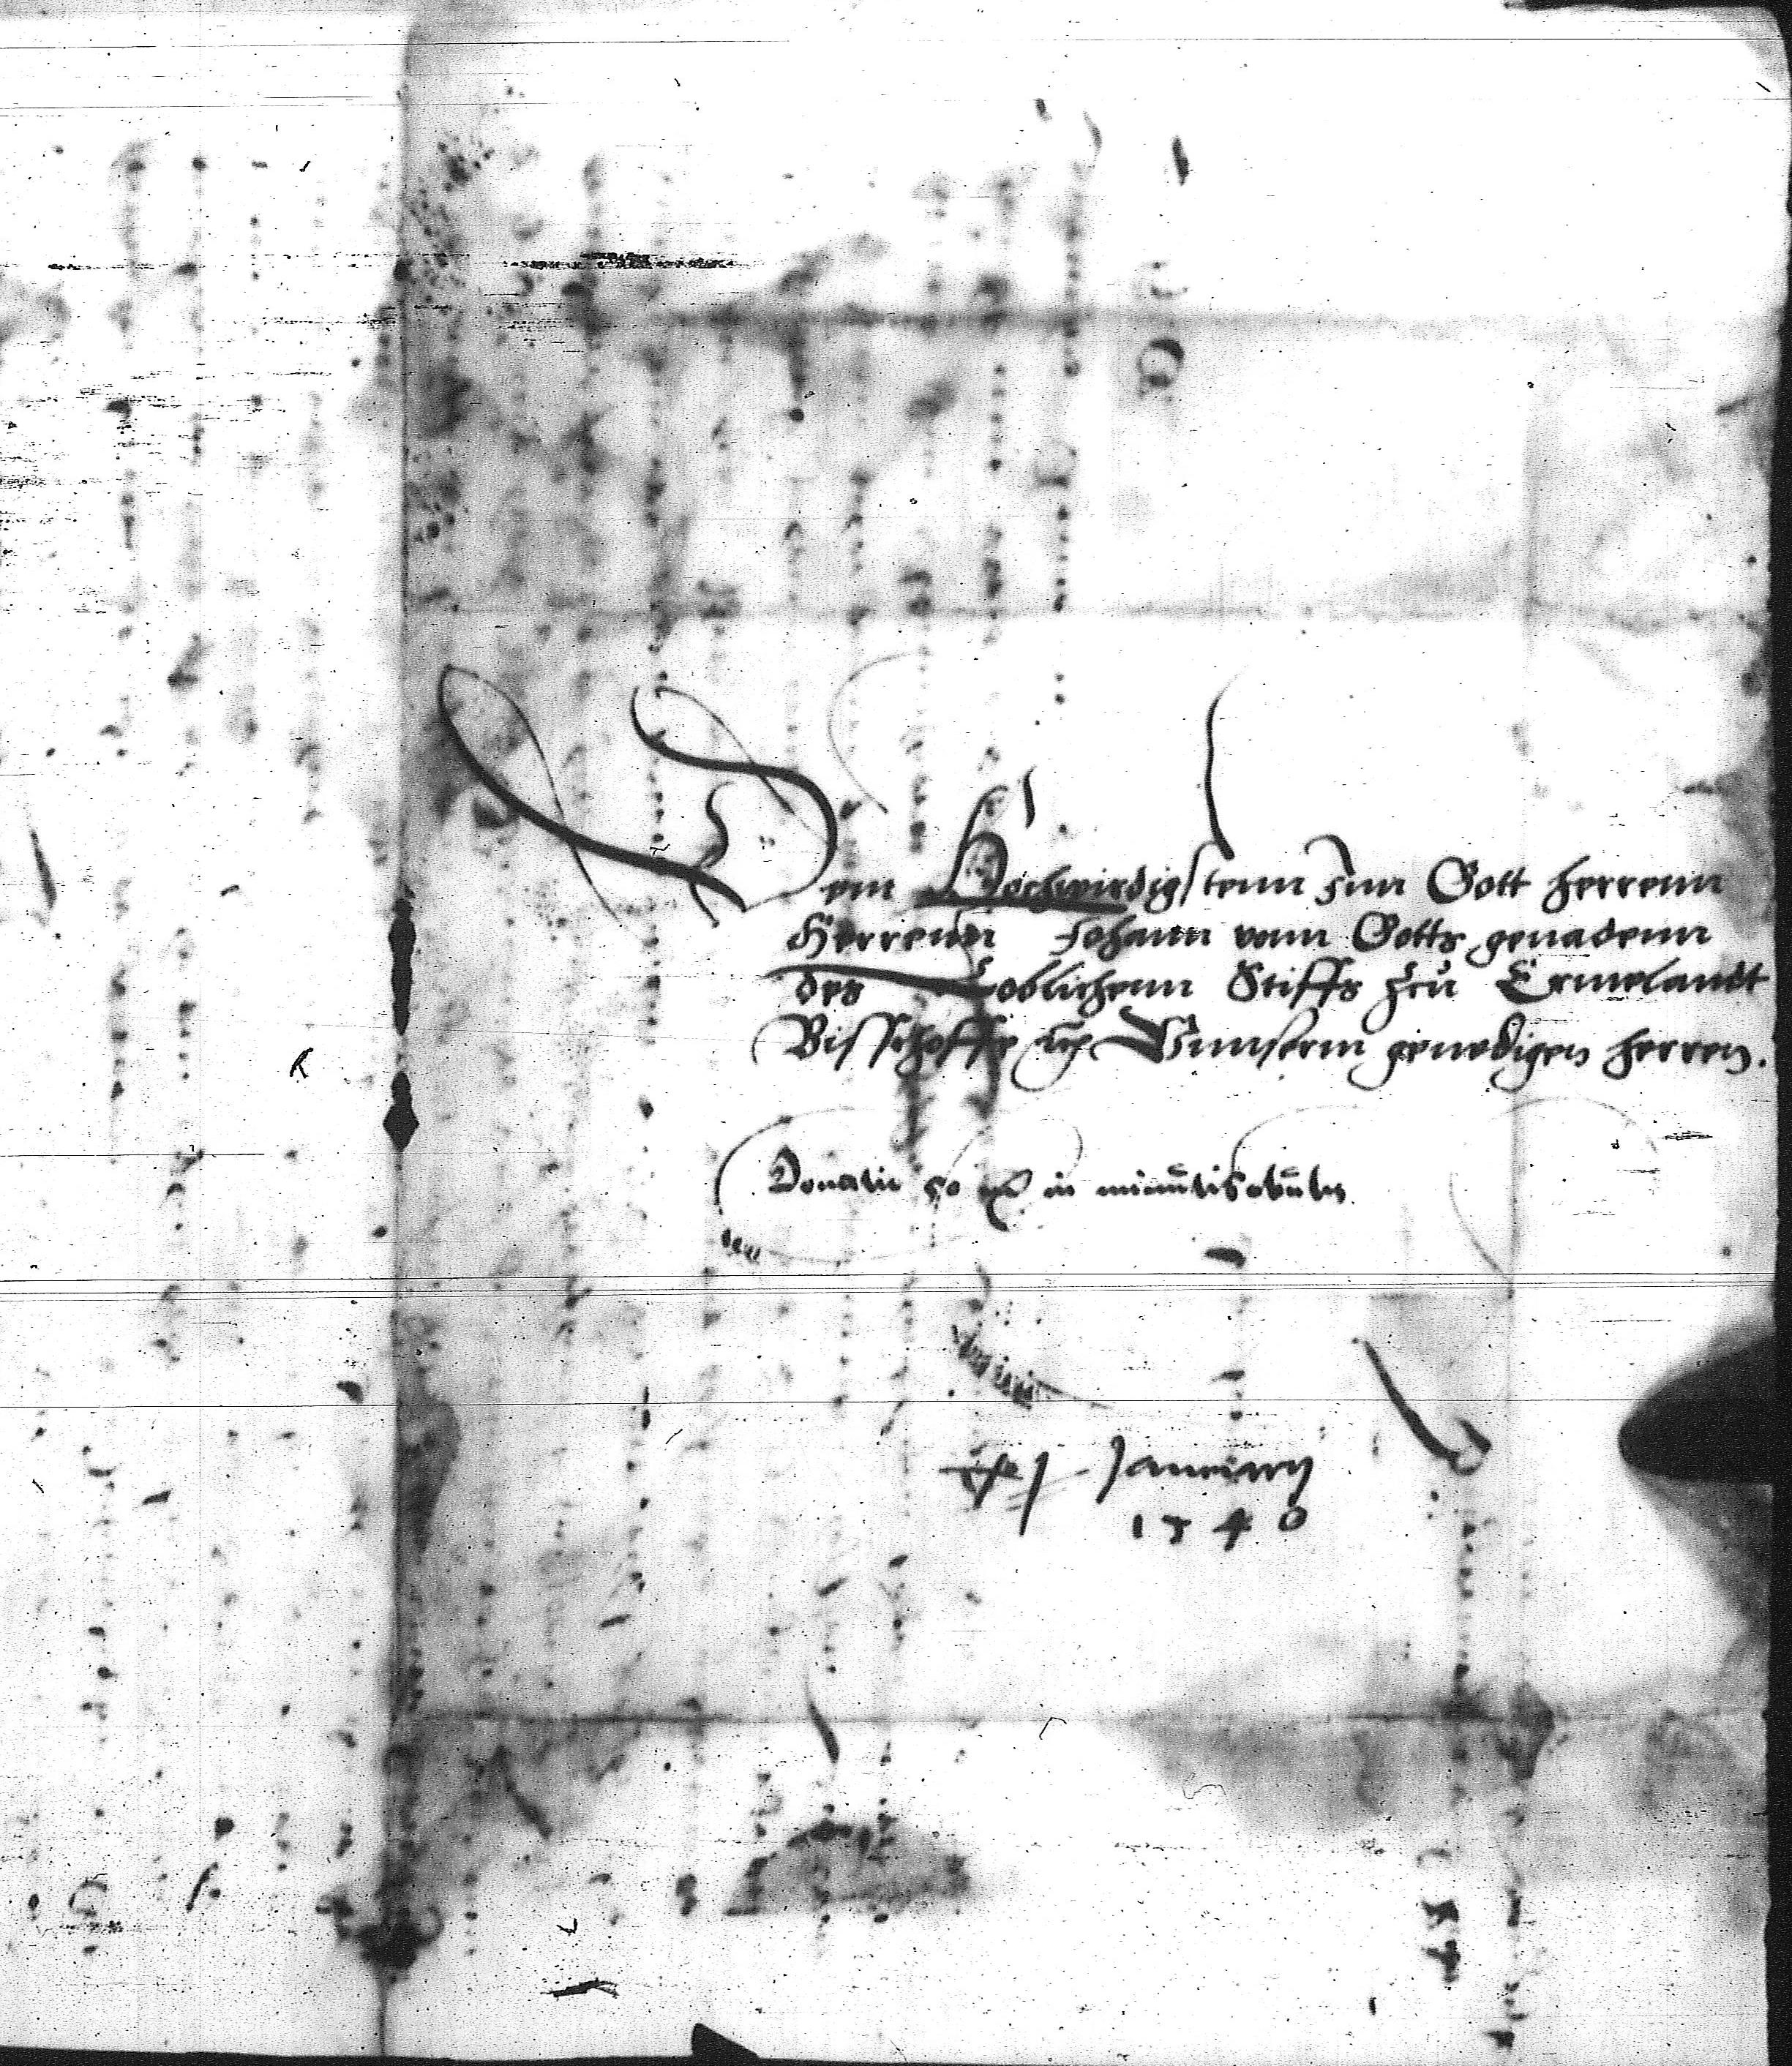 Dem Hochwirdigstenn Inn Gott herrenn
Herrenn Johann vonn Gotts genadenn
des Loblichenn Stiffs zcu Ermelandt
Bisschoffe etc Vnnserm genedigen herren.
Donatio in minutis
Januarij
1540